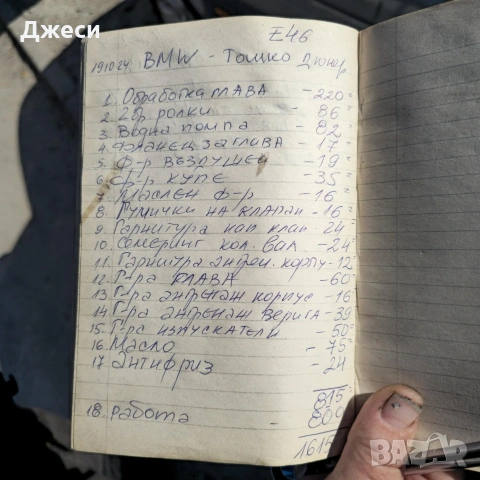 Джеси
E46
19.10.24 BMW - Тошко Дюнер
1. Обработка глава - 220=
2. 2бр ролки - 86=
3. Водна помпа - 82=
4. Фланец за глива - 17=
5. Ф-р въздушен - 19=
6. Ф-р купе - 35=
7. Маслен ф-р - 16=
8. Гумички на клапани - 16=
9. Гарнитура кап. клап 24=
10. Семеринг кол. вал - 24=
11. Гарнитра ангрен. корпу - 12=
12. Г-ра глава - 60=
13. Г-ра ангренаж корпус - 16
14. Г-ра ангренаж верига - 39
15. Г-ра изпускатели - 50=
16. Масло - 75=
17. Антифриз - 24
815=
18. работа - 800
1615
BAZAR